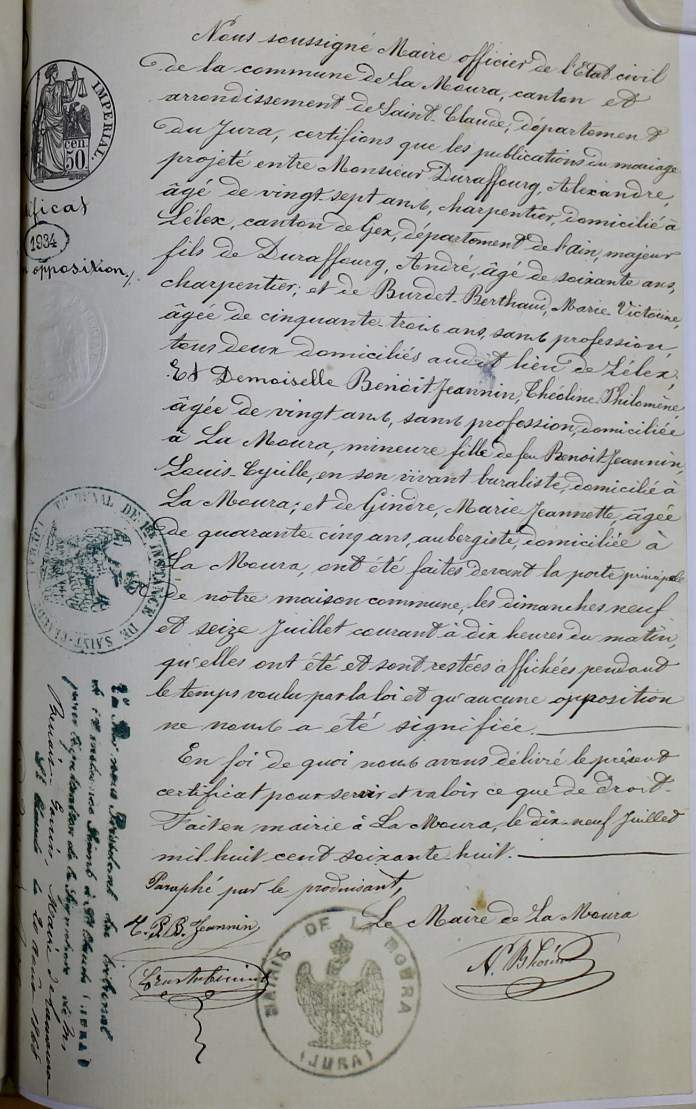 Nous soussigné Maire officier de l'Etat civil
de la commune de La Moura, canton et
arrondissement de Saint-Claude, département
du Jura, certifions que les publications du mariage
projeté entre Monsieur Duraffourg, Alexandre,
âgé de vingt-sept ans, charpentier, domicilié à
Lélex, canton de Gex, département de l'ain, majeur
fils de Duraffourg, André, âgé de soixante ans,
charpentier; et de Burdet-Berthaud, Marie Victorine,
âgée de cinquante trois ans, sans profession,
tous deux domiciliés audit lieu de Lélex;
Et Demoiselle Benoit-Jeannin, Théoline Philomène,
âgée de vingt ans, sans profession, domiciliée
à La Moura, mineure fille de feu Benoit-Jeannin,
Louis-Cyrille, en son vivant buraliste, domicilié à
La Moura; et de Gindre, Marie Jeannette, âgée
de quarante cinq ans, aubergiste, domiciliée à
La Moura, ont été faites devant la porte principale
de notre maison commune, les dimanches neuf
et seize Juillet courant à dix heures du matin,
qu'elles ont été et sont restées affichées pendant
le temps voulu par la loi et qu'aucune opposition
ne nous a été signifiée.
En foi de quoi nous avons délivré le présent
certificat pour servir et valoir ce que de droit.
Fait en mairie à La Moura, le dix-neuf Juillet
mil huit cent soixante huit.
Paraphé par le produisant,
Le Maire de La Moura
Jeannin
IMPERIAL
50 cen.
1934
opposition,
TRIBUNAL DE 1RE INSTANCE DE SAINT-CLAUDE (JURA)
MAIRIE DE LA MOURA
(JURA)